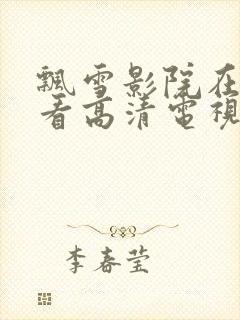 飄雪影院在
看高清電視
李春莹